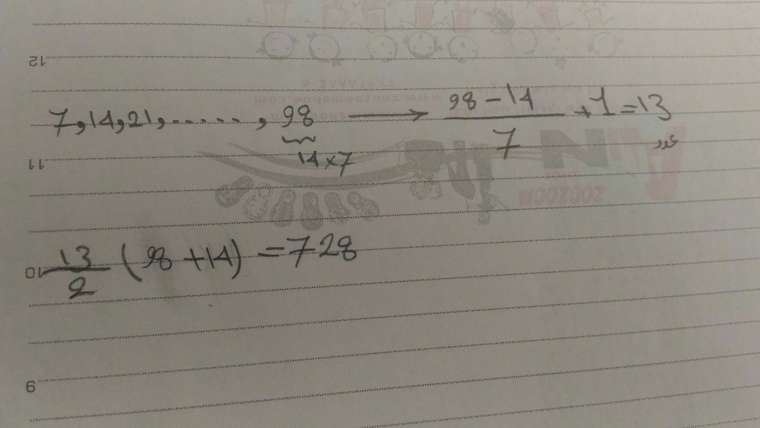 12
7,14,21,.....,98 → 98-14/7 +1=13
14×7
عدد
11
13/2 (98+14) =728
10
9